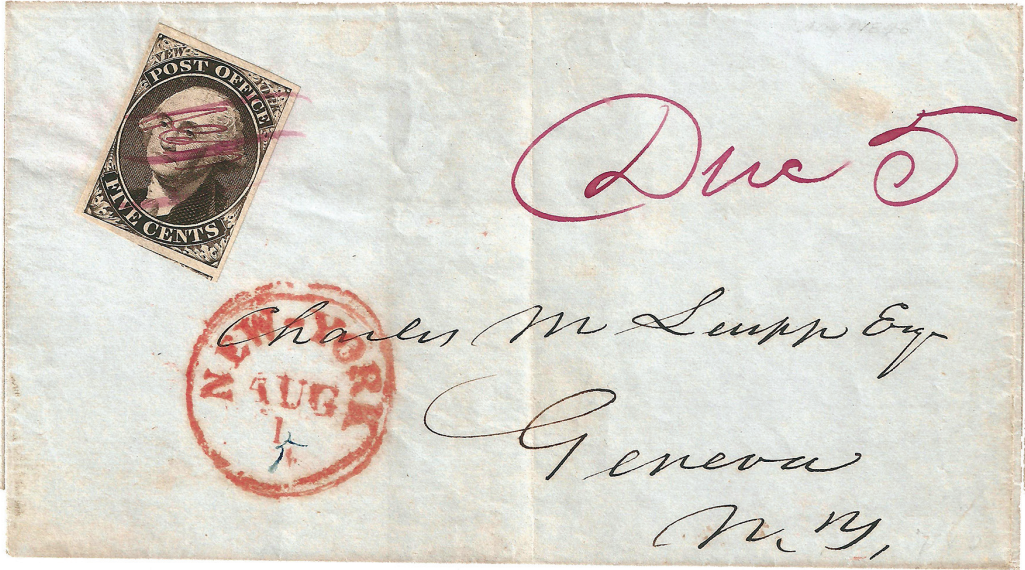 NEW YORK
POST OFFICE
FIVE CENTS
Due 5
NEW-YORK
AUG
1
5
Charles M Leupp Esq
Geneva
N. Y,